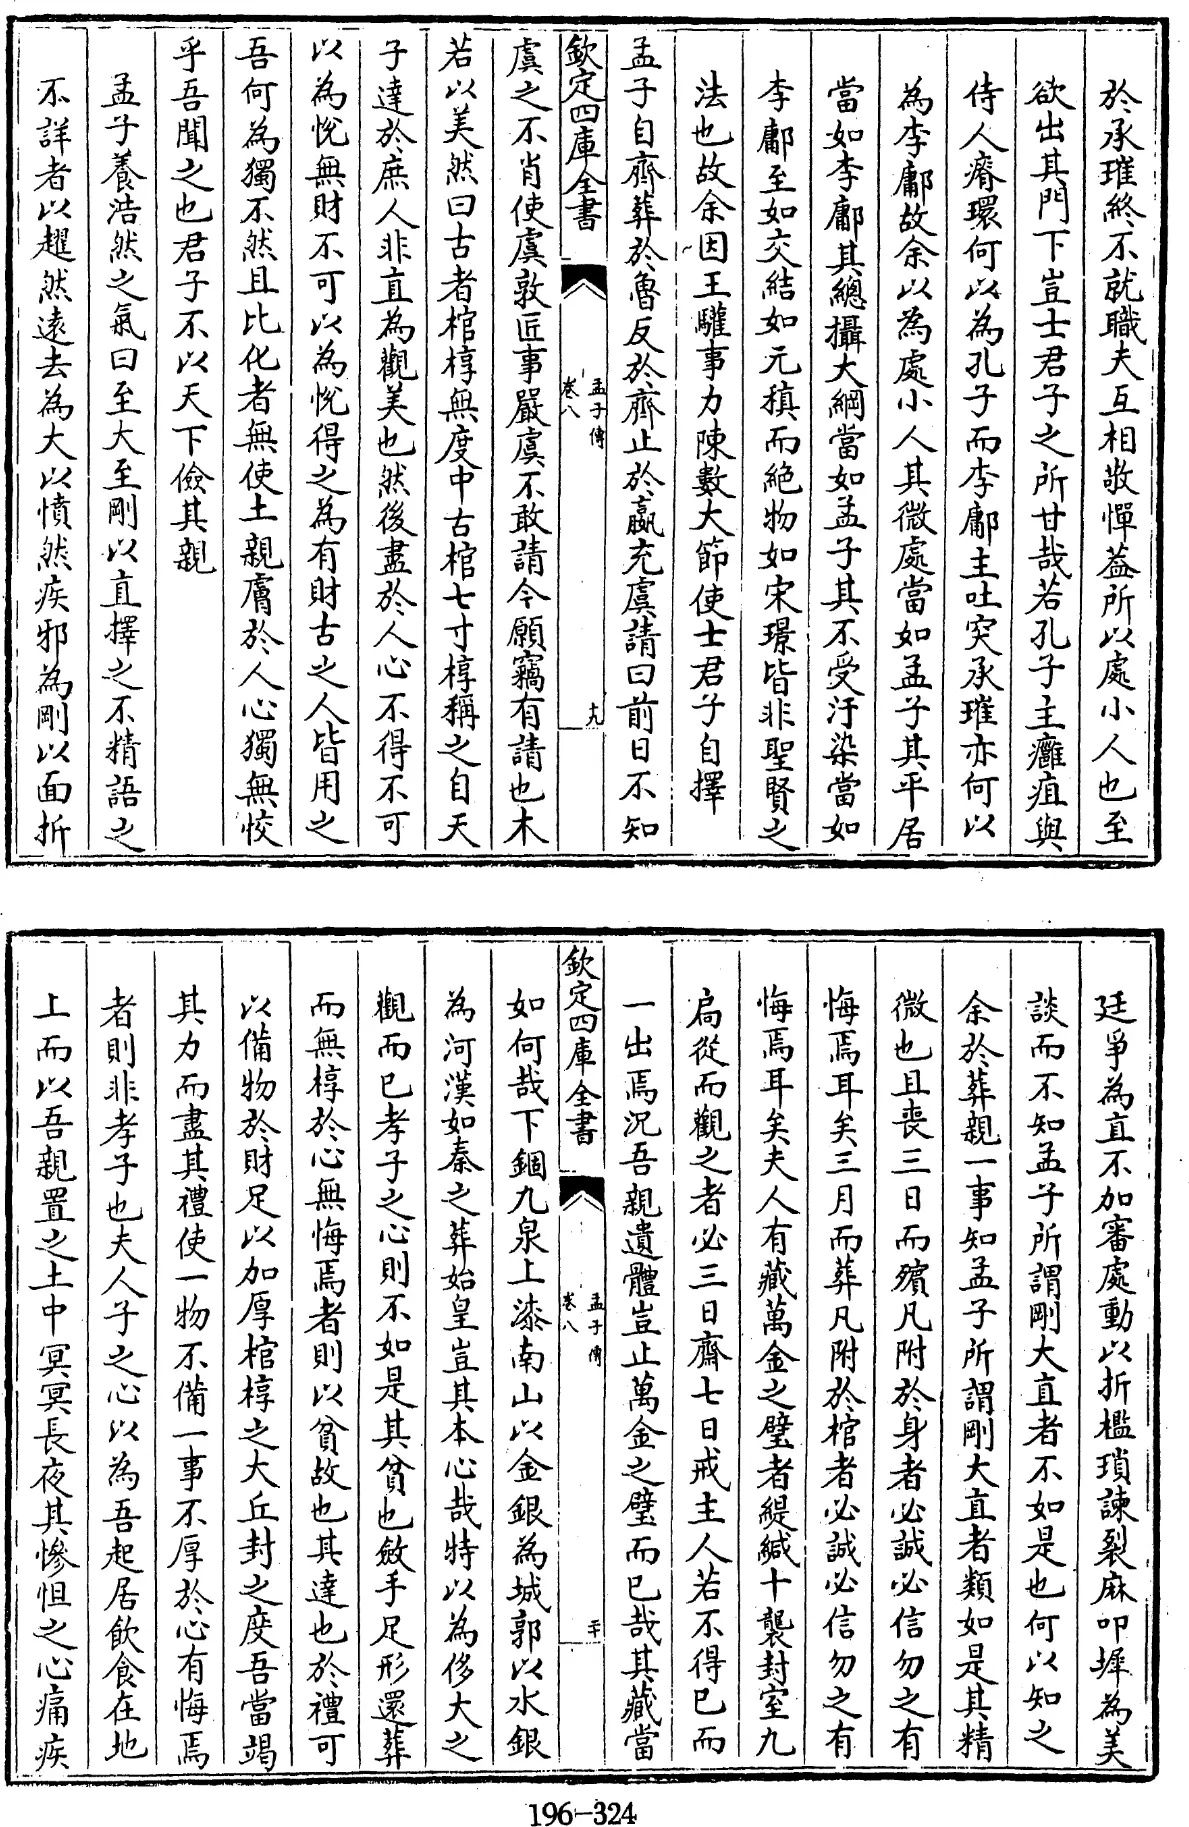 於承璀終不就職夫互相敬憚蓋所以處小人也至
欲出其門下豈士君子之所甘哉若孔子主癰疽與
侍人瘠環何以為孔子而李鄘主吐突承璀亦何以
為李鄘故余以為處小人其微處當如孟子其平居
當如李鄘其總攝大綱當如孟子其不受汙染當如
李鄘至如交結如元稹而絶物如宋璟皆非聖賢之
法也故余因王驩事力陳數大節使士君子自擇
孟子自齊葬於魯反於齊止於嬴充虞請曰前日不知
欽定四庫全書
孟子傳
卷八
十九
虞之不肖使虞敦匠事嚴虞不敢請今願竊有請也木
若以美然曰古者棺椁無度中古棺七寸椁稱之自天
子達於庶人非直為觀美也然後盡於人心不得不可
以為悅無財不可以為悅得之為有財古之人皆用之
吾何為獨不然且比化者無使土親膚於人心獨無恔
乎吾聞之也君子不以天下儉其親
孟子養浩然之氣曰至大至剛以直擇之不精語之
不詳者以趯然遠去為大以憤然疾邪為剛以面折
廷爭為直不加審處動以折檻瑣諫裂麻叩墀為美
談而不知孟子所謂剛大直者不如是也何以知之
余於葬親一事知孟子所謂剛大直者類如是其精
微也且喪三日而殯凡附於身者必誠必信勿之有
悔焉耳矣三月而葬凡附於棺者必誠必信勿之有
悔焉耳矣夫人有藏萬金之璧者緹緘十襲封室九
扃從而觀之者必三日齋七日戒主人若不得已而
一出焉況吾親遺體豈止萬金之璧而已哉其藏當
欽定四庫全書
孟子傳
卷八
二十
如何哉下錮九泉上漆南山以金銀為城郭以水銀
為河漢如秦之葬始皇豈其本心哉特以為侈大之
觀而已孝子之心則不如是其貧也斂手足形還葬
而無椁於心無悔焉者則以貧故也其達也於禮可
以備物於財足以加厚棺椁之大丘封之度吾當竭
其力而盡其禮使一物不備一事不厚於心有悔焉
者則非孝子也夫人子之心以為吾起居飲食在地
上而以吾親置之土中冥冥長夜其慘怛之心痛疾
196-324